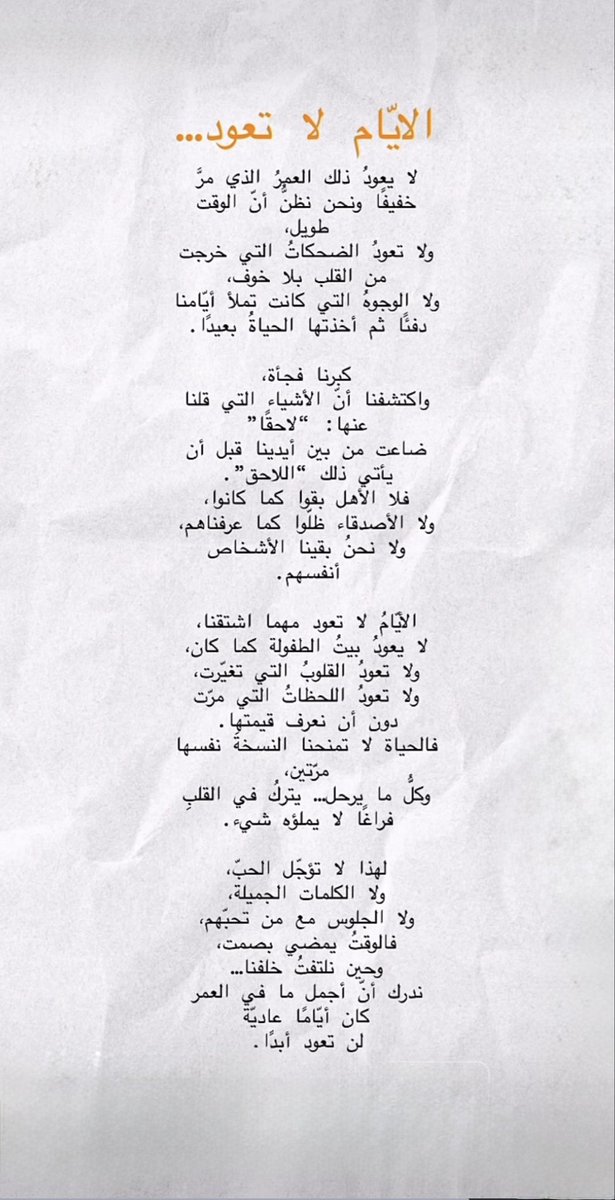 الايّام لا تعود...
لا يعودُ ذلك العمرُ الذي مرَّ
خفيفًا ونحن نظنُّ أنّ الوقت
طويل،
ولا تعودُ الضحكاتُ التي خرجت
من القلب بلا خوف،
ولا الوجوهُ التي كانت تملأ أيّامنا
دفئًا ثم أخذتها الحياةُ بعيدًا.
كبرنا فجأة،
واكتشفنا أنّ الأشياء التي قلنا
عنها: “لاحقًا”
ضاعت من بين أيدينا قبل أن
يأتي ذلك “اللاحق”.
فلا الأهل بقوا كما كانوا،
ولا الأصدقاء ظلّوا كما عرفناهم،
ولا نحنُ بقينا الأشخاص
أنفسهم.
الأيّامُ لا تعود مهما اشتقنا،
لا يعودُ بيتُ الطفولة كما كان،
ولا تعودُ القلوبُ التي تغيّرت،
ولا تعودُ اللحظاتُ التي مرّت
دون أن نعرف قيمتها.
فالحياة لا تمنحنا النسخةَ نفسها
مرّتين،
وكلُّ ما يرحل… يتركُ في القلبِ
فراغًا لا يملؤه شيء.
لهذا لا تؤجّل الحبّ،
ولا الكلمات الجميلة،
ولا الجلوس مع من تحبّهم،
فالوقتُ يمضي بصمت،
وحين نلتفتُ خلفنا…
ندرك أنّ أجمل ما في العمر
كان أيّامًا عاديّة
لن تعود أبدًا.